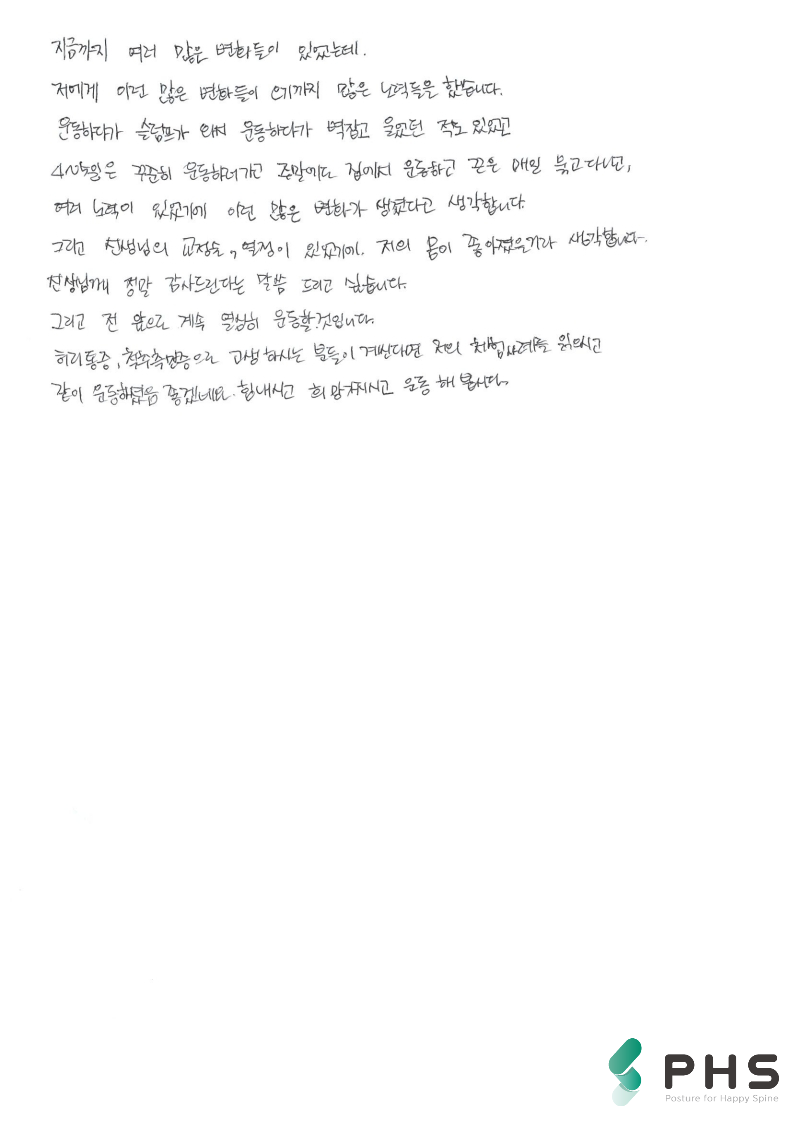 지금까지 여러 많은 변화들이 있었는데.
저에게 이런 많은 변화들이 오기까지 많은 노력들을 했습니다.
운동하다가 슬럼프가 와서 운동하다가 벽잡고 울었던 적도 있었고
4~5일은 꾸준히 운동하러가고 주말에도 집에서 운동하고 끈은 매일 묶고다니고,
여러 노력이 있었기에 이런 많은 변화가 생겼다고 생각합니다.
그리고 선생님의 교정술, 열정이 있었기에. 저의 몸이 좋아졌을거라 생각합니다.
선생님께 정말 감사드린다는 말씀 드리고 싶습니다.
그리고 전 앞으로 계속 열심히 운동할것입니다.
허리통증, 척추측만증으로 고생하시는 분들이 계신다면 저의 체험사례를 읽으시고
같이 운동하였음 좋겠네요. 힘내시고 희망가지시고 운동 해 봅시다.
PHS
Posture for Happy Spine